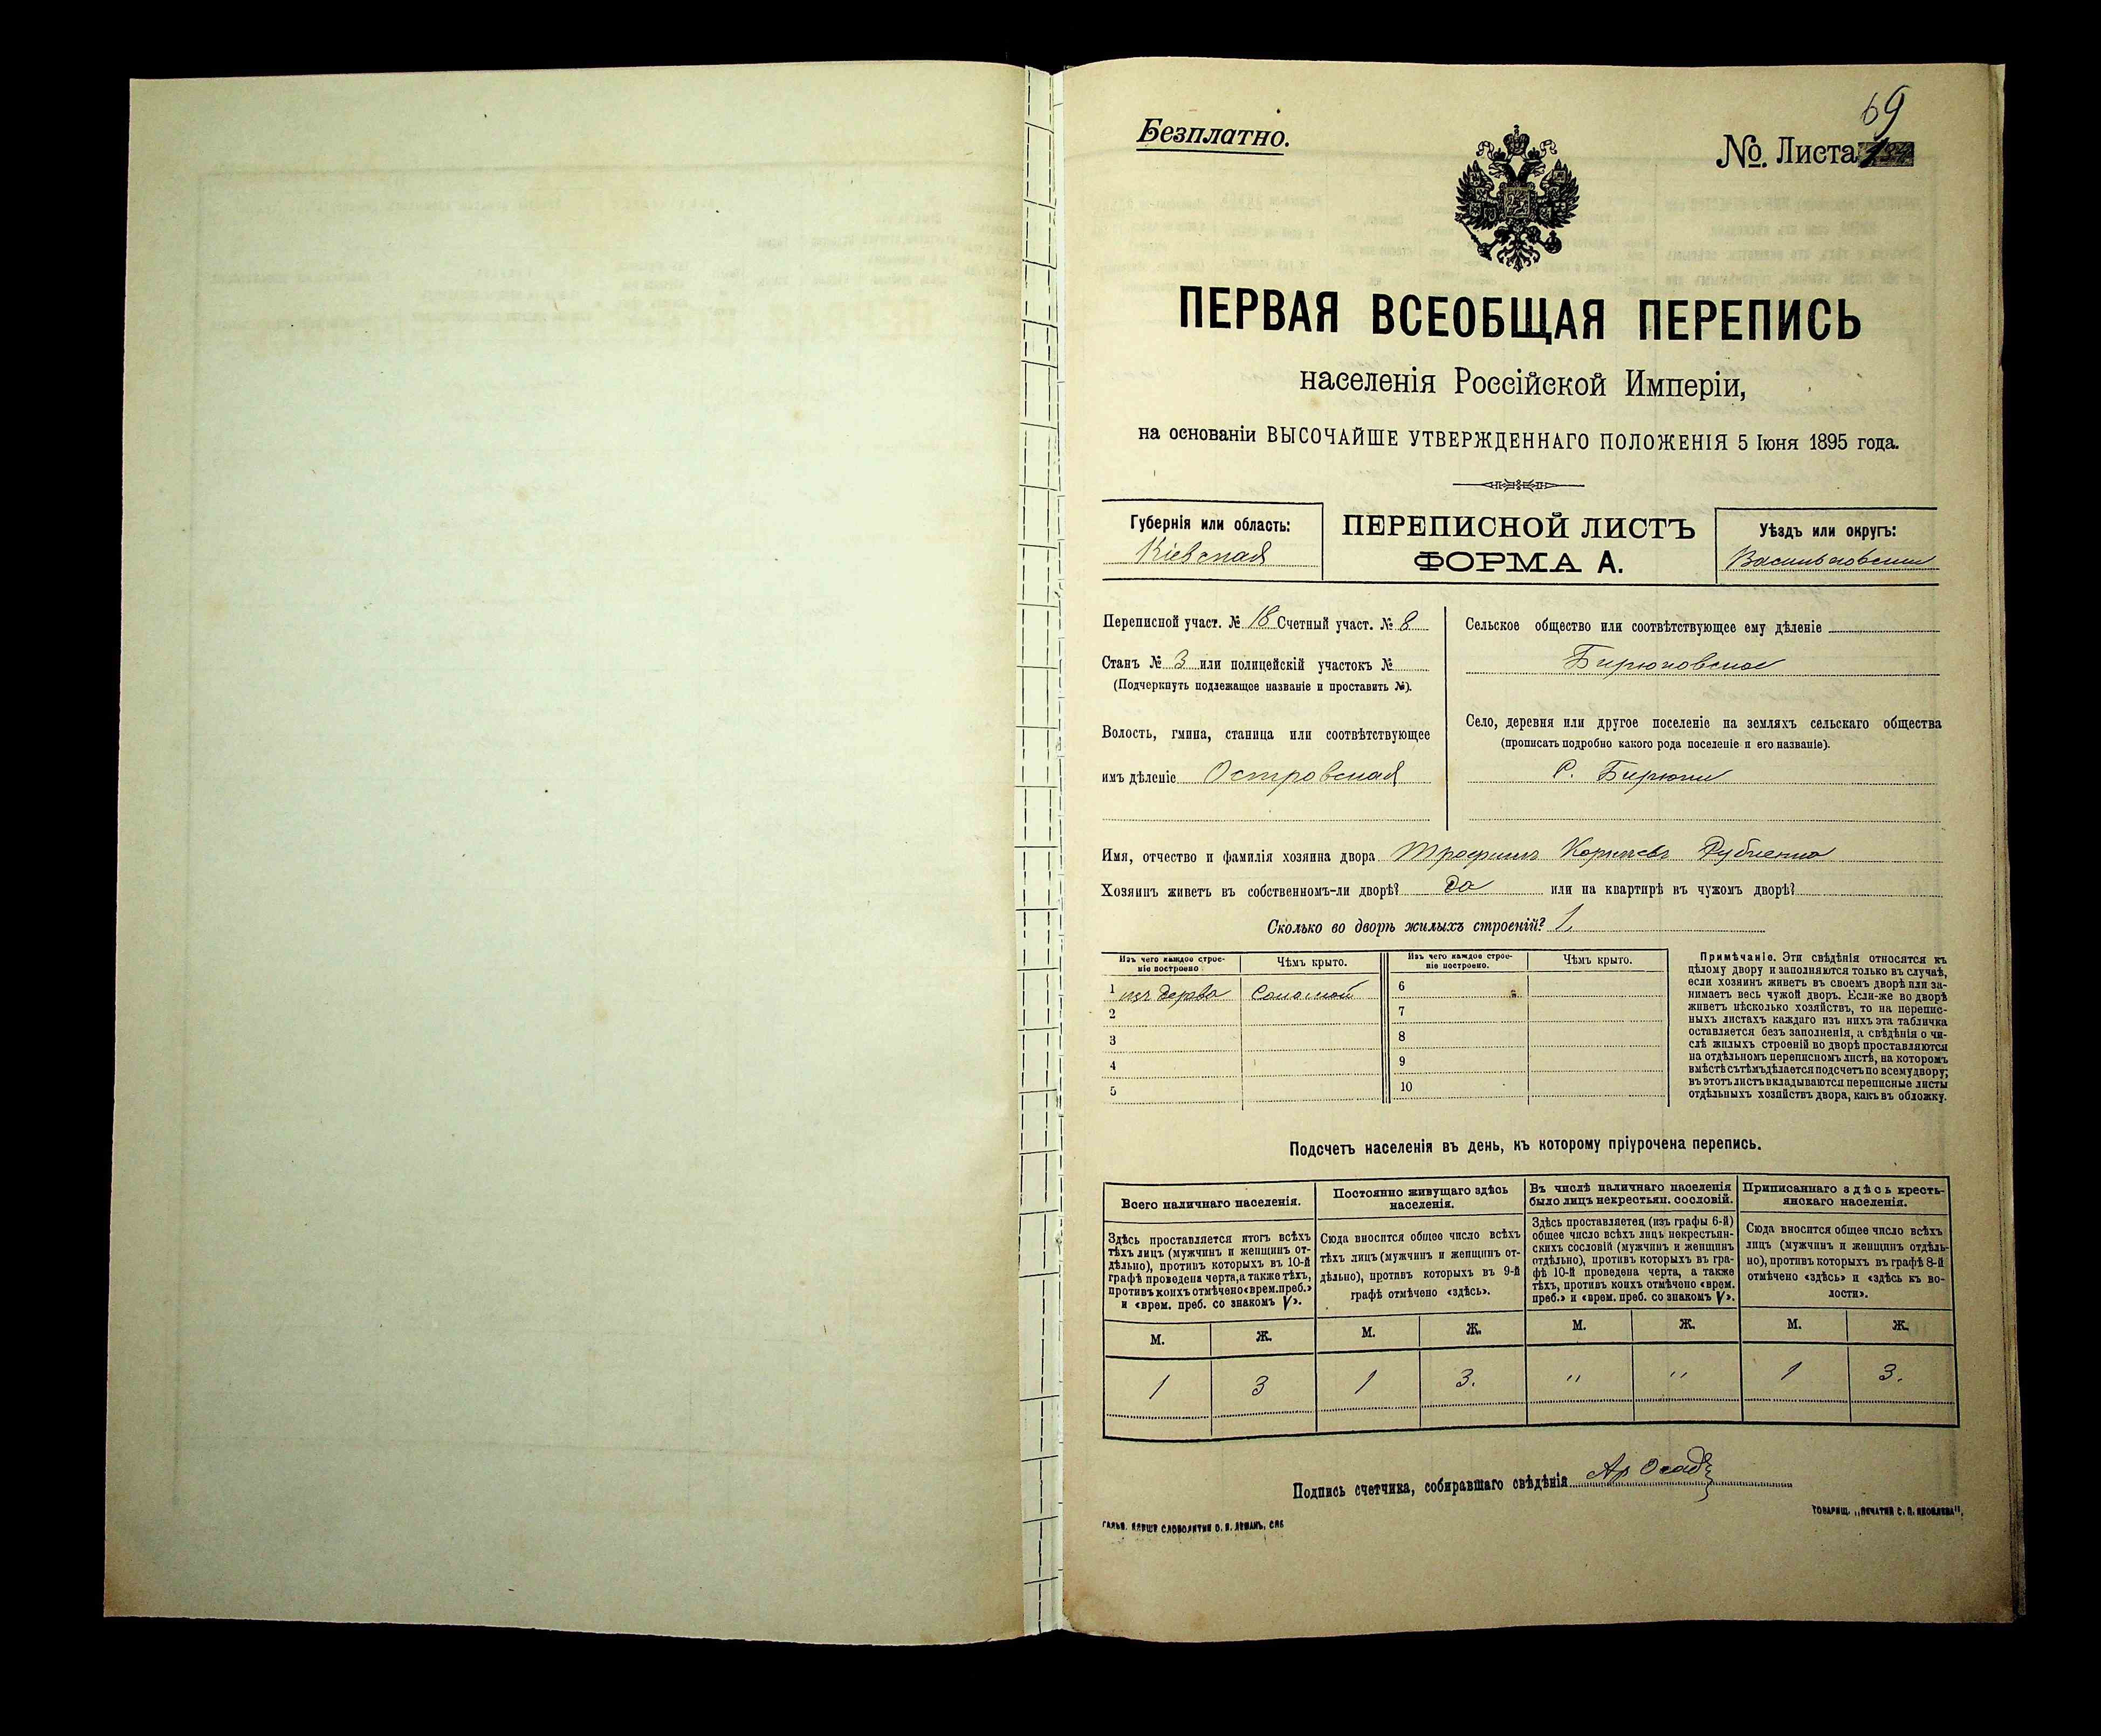 69
Безплатно.
№. Листа
ПЕРВАЯ ВСЕОБЩАЯ ПЕРЕПИСЬ
населенія Россійской Имперіи,
на основаніи ВЫСОЧАЙШЕ УТВЕРЖДЕННАГО ПОЛОЖЕНІЯ 5 Іюня 1895 года.
Губернія или область:
Кіевская
ПЕРЕПИСНОЙ ЛИСТЪ
ФОРМА А.
Уѣздъ или округъ:
Васильковскій
Переписной участ. № 18 Счетный участ. № 8
Станъ № 3 или полицейскій участокъ №
(Подчеркнуть подлежащее названіе и проставить №).
Волость, гмина, станица или соотвѣтствующее
имъ дѣленіе Островская
Сельское общество или соотвѣтствующее ему дѣленіе
Бирюковское
Село, деревня или другое поселеніе на земляхъ сельскаго общества
(прописать подробно какого рода поселеніе и его названіе).
С. Бирюки
Имя, отчество и фамилія хозяина двора Трофимъ Корнѣевъ
Хозяинъ живетъ въ собственномъ-ли дворѣ? Да или на квартирѣ въ чужомъ дворѣ?
Сколько во дворѣ жилыхъ строеній? 1.
Изъ чего каждое строе-
ніе построено
Чѣмъ крыто.
Изъ чего каждое строе-
ніе построено.
Чѣмъ крыто.
1 изъ дерева Соломой
2
3
4
5
6
7
8
9
10
Примѣчаніе. Эти свѣдѣнія относятся къ
цѣлому двору и заполняются только въ случаѣ,
если хозяинъ живетъ въ своемъ дворѣ или за-
нимаетъ весь чужой дворъ. Если-же во дворѣ
живетъ нѣсколько хозяйствъ, то на перепис-
ныхъ листахъ каждаго изъ нихъ эта табличка
оставляется безъ заполненія, а свѣдѣнія о чи-
слѣ жилыхъ строеній во дворѣ проставляются
на отдѣльномъ переписномъ листѣ, на которомъ
вмѣстѣ съ тѣмъ дѣлается подсчетъ по всему двору;
въ этотъ листъ вкладываются переписные листы
отдѣльныхъ хозяйствъ двора, какъ въ обложку.
Подсчетъ населенія въ день, къ которому пріурочена перепись.
Всего наличнаго населенія.
Здѣсь проставляется итогъ всѣхъ
тѣхъ лицъ (мужчинъ и женщинъ от-
дѣльно), противъ которыхъ въ 10-й
графѣ проведена черта, а также тѣхъ,
противъ коихъ отмѣчено «врем. преб.»
и «врем. преб. со знакомъ V».
Постоянно живущаго здѣсь
населенія.
Сюда вносится общее число всѣхъ
тѣхъ лицъ (мужчинъ и женщинъ от-
дѣльно), противъ которыхъ въ 9-й
графѣ отмѣчено «здѣсь».
Въ числѣ наличнаго населенія
было лицъ некрестьян. сословій.
Здѣсь проставляется (изъ графы 6-й)
общее число всѣхъ лицъ некрестьян-
скихъ сословій (мужчинъ и женщинъ
отдѣльно), противъ которыхъ въ гра-
фѣ 10-й проведена черта, а также
тѣхъ, противъ коихъ отмѣчено «врем.
преб.» и «врем. преб. со знакомъ V».
Приписаннаго здѣсь кресть-
янскаго населенія.
Сюда вносится общее число всѣхъ
лицъ (мужчинъ и женщинъ отдѣль-
но), противъ которыхъ въ графѣ 8-й
отмѣчено «здѣсь» и «здѣсь къ во-
лости».
М. Ж. М. Ж. М. Ж. М. Ж.
1 3 1 3. " " 1 3.
Подпись счетчика, собиравшаго свѣдѣнія
ТОВАРИЩ. „ПЕЧАТНЯ С. П. ЯКОВЛЕВА".